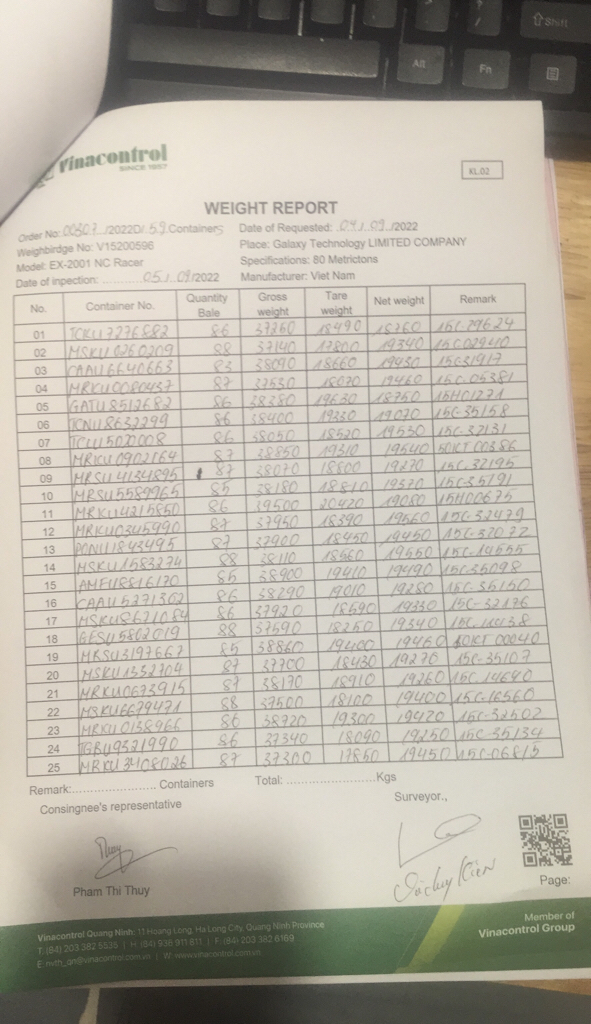 Shift
Alt
Fn
Vinacontrol
SINCE 1957
KL.02
WEIGHT REPORT
Order No: 00607 /2022D/ 59 Containers Date of Requested: 04 / 09 /2022
Weighbirdge No: V15200596 Place: Galaxy Technology LIMITED COMPANY
Model: EX-2001 NC Racer Specifications: 80 Metrictons
Date of inpection: 05 / 09 /2022 Manufacturer: Viet Nam
No. Container No. Quantity Bale Gross weight Tare weight Net weight Remark
01 TCKU7276582 86 37260 18490 15C-79624
02 MSKU0260209 88 37140 17800 19340 15C02940
03 CAAU6640663 83 38090 18660 19430 15C31917
04 MRKU0080437 87 37530 18070 19460 15C-05381
05 GATU8512682 86 38380 19630 18750 15H01271
06 86 38400 19330 19070 15C-35158
07 86 38050 18520 19530 15C-32131
08 MRKU0902164 87 38850 19310 19540 50KT00386
09 MRSU4134895 87 38070 18800 19270 15C-32195
10 MRSU5589965 85 38180 18810 19370 15C-35191
11 MRKU4215850 86 39500 20420 19080 15H00675
12 MRKU0345990 87 37950 18390 19560 15C-32479
13 PONU1843495 87 37900 18450 19450 15C-32072
14 MSKU1583274 88 38110 18560 19550 15C-14555
15 AMFU8816170 85 38900 19410 19490 15C-35098
16 CAAU5271362 86 38290 19010 19280 15C-35150
17 MSKU8621084 86 37920 18590 19330 15C-32176
18 GESU5802019 88 37590 18250 19340
19 MRSU3197667 85 38860 19400 19460 50KT00040
20 MSKU1332704 87 37700 18430 19270 15C-35107
21 MRKU0673915 87 38170 18910 19260 15C-14640
22 MSKU6679471 88 37500 18100 19400 15C-16560
23 MRKU0138966 86 38720 19300 19420 15C-32502
24 TGBU9321990 86 37340 18090 19250 15C-35134
25 MRKU3408026 87 37300 17850 19450 15C-06815
Remark:.................... Containers Total: ........................Kgs
Consingnee's representative Surveyor.,
Thuy
Pham Thi Thuy
Page:
Vinacontrol Quang Ninh: 11 Hoang Long, Ha Long City, Quang Ninh Province
T: (84) 203 382 5535 | H: (84) 936 911 811 | F: (84) 203 382 6169
E: nvth_qn@vinacontrol.com.vn | W: www.vinacontrol.com.vn
Member of
Vinacontrol Group